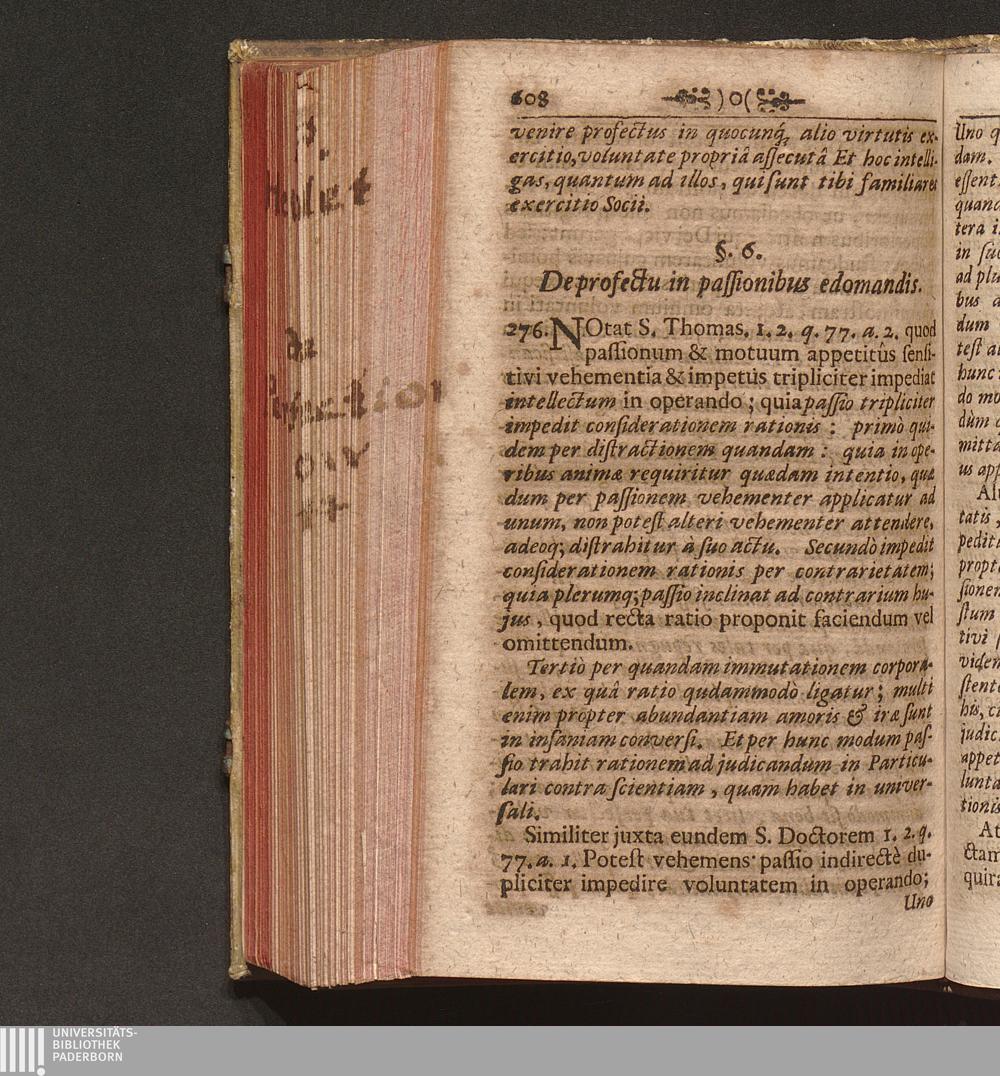 608 )o(
venire profectus in quocunq́; alio virtutis ex-
ercitio, voluntate propriâ aſſecutâ Et hoc intelli-
gas, quantum ad illos, qui ſunt tibi familiares
exercitio Socii.
§. 6.
De profectu in paſſionibus edomandis.
276. NOtat S. Thomas. 1. 2. q. 77. a. 2. quod
paſſionum & motuum appetitûs ſenſi-
tivi vehementia & impetus tripliciter impediat
intellectum in operando; quia paſſio tripliciter
impedit conſiderationem rationis: primò qui-
dem per diſtractionem quandam: quia in ope-
ribus animæ requiritur quædam intentio, quæ
dum per paſſionem vehementer applicatur ad
unum, non poteſt alteri vehementer attendere,
adeoq; diſtrahitur à ſuo actu. Secundò impedit
conſiderationem rationis per contrarietatem;
quia plerumq; paſſio inclinat ad contrarium hu-
jus, quod recta ratio proponit faciendum vel
omittendum.
Tertiò per quandam immutationem corpora-
lem, ex quâ ratio qudammodò ligatur; multi
enim propter abundantiam amoris & iræ ſunt
in inſaniam converſi. Et per hunc modum paſ-
ſio trahit rationem ad judicandum in Particu-
lari contra ſcientiam, quam habet in univer-
ſali.
Similiter juxta eundem S. Doctorem 1. 2. q.
77. a. 1. Poteſt vehemens paſſio indirectè du-
pliciter impedire voluntatem in operando;
Uno
Uno q
dam.
eſſent.
quand
tera i
in ſuo
ad plu
bus a
dum
teſt al
hunc
do mo
dùm
mitta
us app
Al
tatis,
pedit
propt
ſionem
ſtum
tivi
viden
ſtent
his, ci
judic
appet
lunta
tionis
At
ctam
quira
UNIVERSITÄTS-
BIBLIOTHEK
PADERBORN